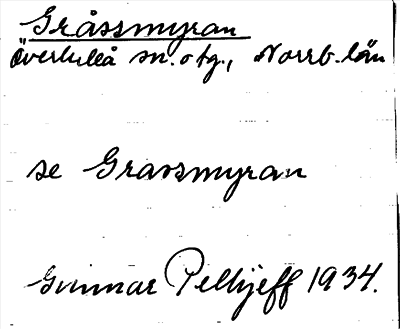 Gråssmyran
Överluleå sn. o tg., Norrb. län
se Gravsmyran
Gunnar Pellijeff 1934.